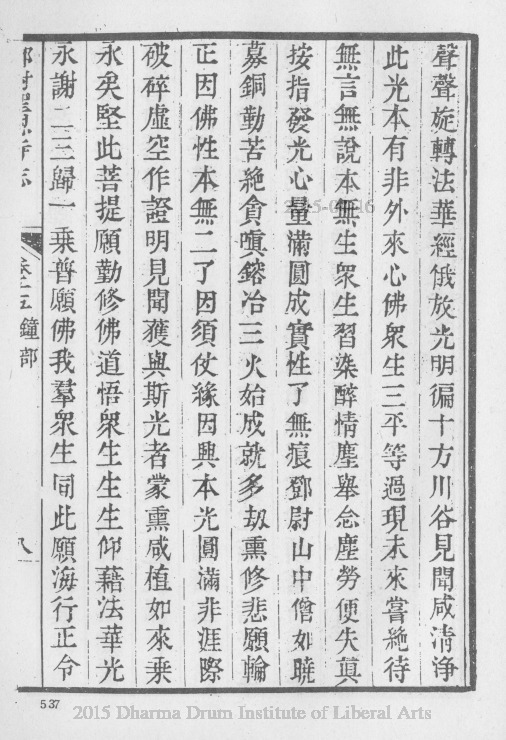 聲聲旋轉法華經俄放光明徧十方川谷見聞咸淸淨
此光本有非外來心佛衆生三平等過現未來嘗絶待
無言無說本無生衆生習染醉情塵舉念塵勞便失眞
按指發光心量滿圓成實性了無痕鄧尉山中僧如曉
募銅勤苦絶貪嗔鎔冶三火始成就多劫熏修悲願輪
正因佛性本無二了因須仗緣因興本光圓滿非涯際
破碎虛空作證明見聞獲與斯光者蒙熏咸植如來乘
永矣堅此菩提願勤修佛道悟衆生生生仰藉法華光
永謝二三歸一乘普願佛我羣衆生同此願海行正令
鄧尉聖恩寺志
卷十五 鐘部
八
537
2015 Dharma Drum Institute of Liberal Arts